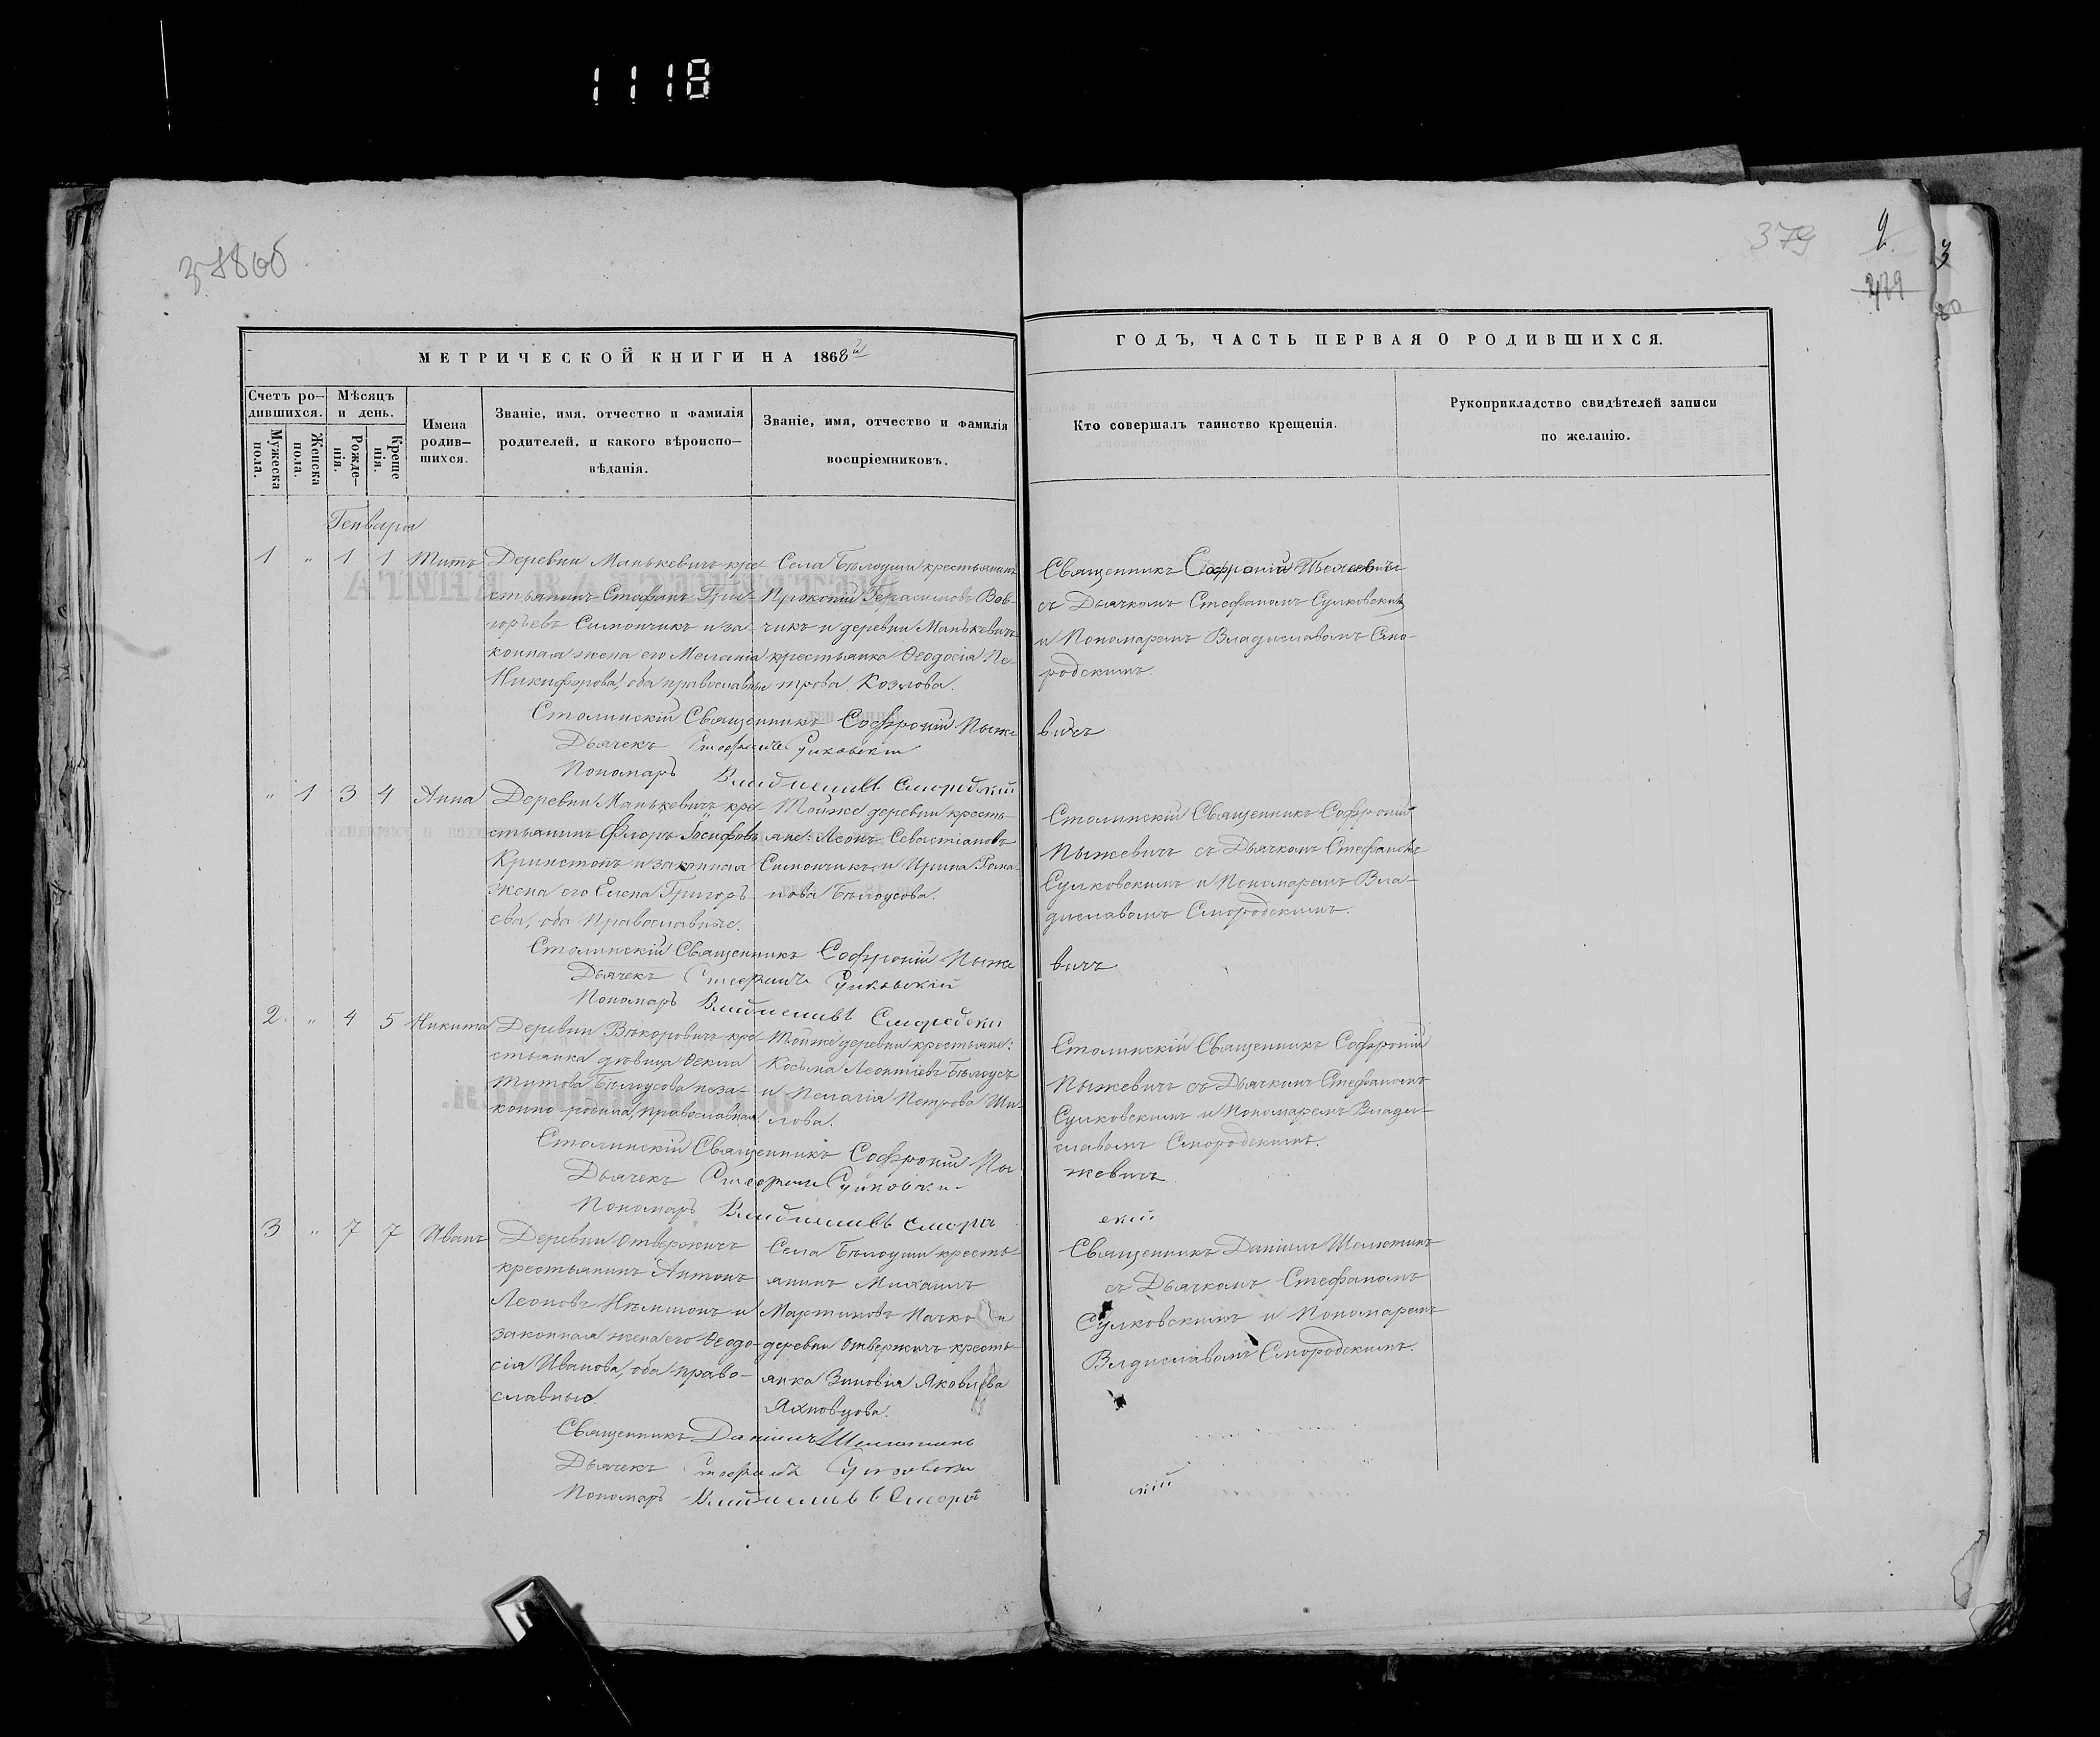 1118
379
2
3
379
МЕТРИЧЕСКОЙ КНИГИ НА 1868й
ГОДЪ, ЧАСТЬ ПЕРВАЯ О РОДИВШИХСЯ.
Счетъ ро-
дившихся.
Мужеска
пола.
Женска
пола.
Мѣсяцъ
и день.
Рожде-
нія.
Креще
нія.
Имена
родив-
шихся.
Званіе, имя, отчество и фамилія
родителей, и какого вѣроиспо-
вѣданія.
Званіе, имя, отчество и фамилія
воспріемниковъ.
Кто совершалъ таинство крещенія.
Рукоприкладство свидѣтелей записи
по желанію.
Генваря
1 " 1 1 Титъ
Деревни Манькевичъ кре-
стьянинъ Стефанъ Гри-
горьевъ Симончикъ и за-
конная жена его Меланія
Никифорова, оба православные
Села Бѣлоуши крестьянинъ
Прокопій Герасимовъ Вов-
чикъ и деревни Манькевичъ
крестьянка Ѳеодосія Пе-
трова Козлова.
Священникъ Софроній Пыжевичъ
съ Дьячкомъ Стефаномъ Сулковскимъ
и Пономаремъ Владиславомъ Смо-
родскимъ.
Столинскій Священникъ Софроній Пыже
вичъ
Дьячекъ Стефанъ Сулковскій
Пономарь Владиславъ Смородскій
" 1 3 4 Анна
Деревни Манькевичъ кре-
стьянинъ Флоръ Іосифовъ
Кринстопъ и законная
жена его Елена Григорь-
ева, оба Православные.
Тойже деревни кресть-
яне: Леонъ Севастіановъ
Симончикъ и Ирина Рома-
нова Бѣлоусова.
Столинскій Священникъ Софроній
Пыжевичъ съ Дьячкомъ Стефаномъ
Сулковскимъ и Пономаремъ Вла-
диславомъ Смородскимъ.
Столинскій Священникъ Софроній Пыже
вичъ
Дьячекъ Стефанъ Сулковскій
Пономарь Владиславъ Смородскій
2 " 4 5 Никита
Деревни Вѣкоровичъ кре-
стьянка дѣвица Ѳекла
Титова Бѣлоусова неза-
конно родила, православная.
Тойже деревни крестьяне:
Косьма Леонтіевъ Бѣлоусъ
и Пелагія Петрова Ши-
лова.
Столинскій Священникъ Софроній
Пыжевичъ съ Дьячкомъ Стефаномъ
Сулковскимъ и Пономаремъ Влади-
славомъ Смородскимъ.
Столинскій Священникъ Софроній Пы
жевичъ
Дьячекъ Стефанъ Сулковскі
Пономарь Владиславъ Смород
скій
3 " 7 7 Иванъ
Деревни Отвержичъ
крестьянинъ Антонъ
Леоновъ Нѣмшонъ и
законная жена его Ѳеодо-
сія Иванова, оба право-
славные.
Села Бѣлоуши кресть-
янинъ Михаилъ
Мартиновъ Пачко и
деревни Отвержичъ кресть-
янка Зиновія Яковлева
Яхновцова.
Священникъ Даніилъ Шелютинъ
съ Дьячкомъ Стефаномъ
Сулковскимъ и Пономаремъ
Влдиславомъ Смородскимъ.
Священникъ Даніилъ Шелютинъ
Дьячекъ Стефанъ Сулковскі
Пономарь Владиславъ Смород
скій